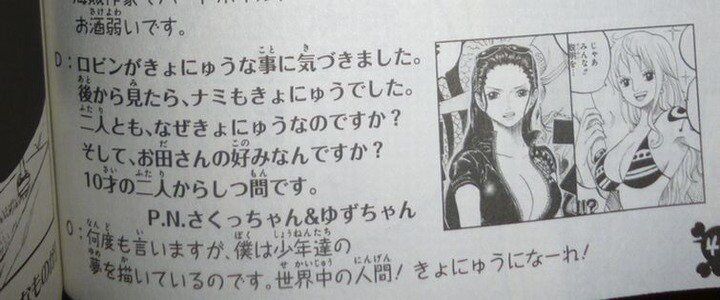 お酒弱いです。
D：ロビンがきょにゅうな事に気づきました。
後から見たら、ナミもきょにゅうでした。
二人とも、なぜきょにゅうなのですか？
そして、お田さんの好みなんですか？
10才の二人からしつ問です。
P.N.さくっちゃん&ゆずちゃん
O：何度も言いますが、僕は少年達の
夢を描いているのです。世界中の人間！きょにゅうになーれ！
じゃあ
みんな!!
!!?